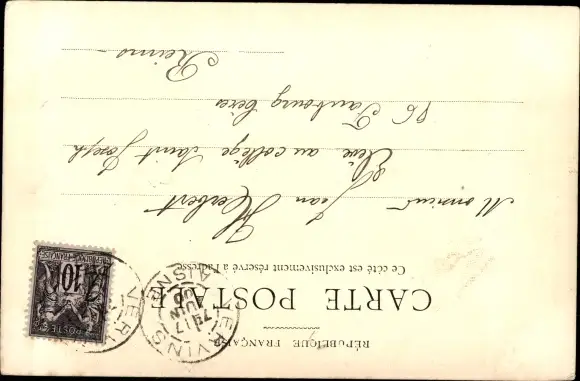 RÉPUBLIQUE FRANÇAISE
CARTE POSTALE
Ce côté est exclusivement réservé à l'adresse
Monsieur Jean Herbert
Elève au collège Saint Joseph
Faubourg Cérès
Reims
VERVINS
AISNE
17
JUIN
10